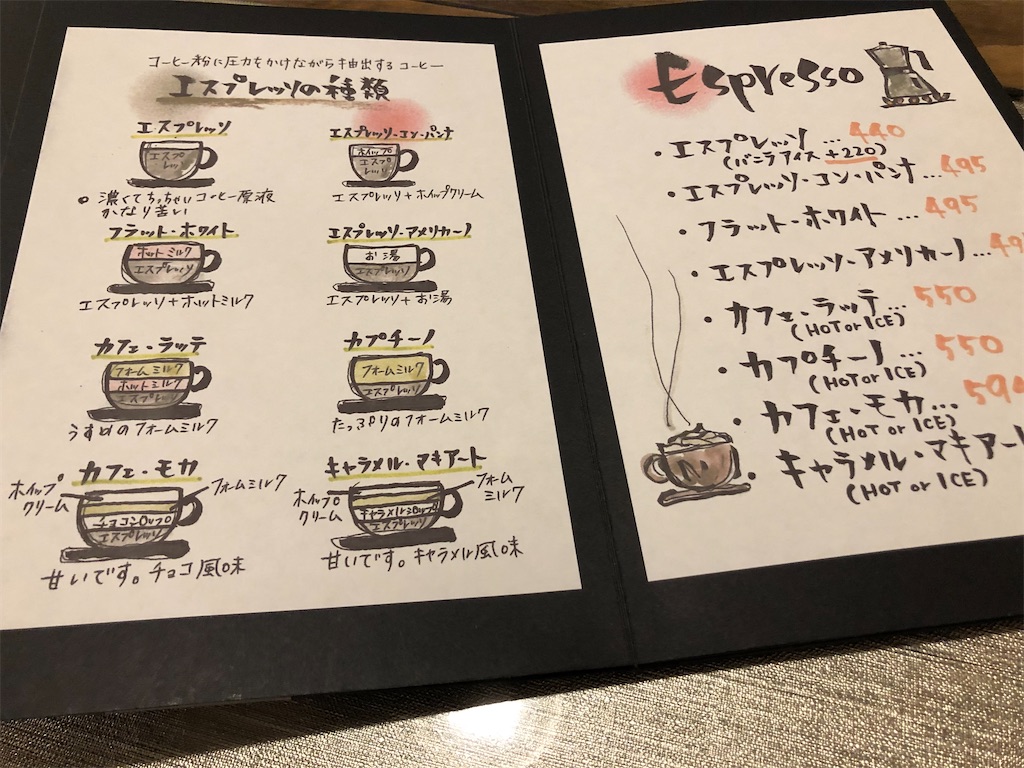 コーヒー粉に圧力をかけながら抽出するコーヒー
エスプレッソの種類
エスプレッソ
エスプ
レッソ
濃くてちっちゃいコーヒー原液
かなり苦い
エスプレッソ・コン・パンナ
ホイップ
エスプ
レッソ
エスプレッソ+ホイップクリーム
フラット・ホワイト
ホットミルク
エスプレッソ
エスプレッソ+ホットミルク
エスプレッソ・アメリカーノ
お湯
エスプレッソ
エスプレッソ+お湯
カフェ・ラッテ
フォームミルク
ホットミルク
エスプレッソ
うすめのフォームミルク
カプチーノ
フォームミルク
エスプレッソ
たっぷりのフォームミルク
カフェ・モカ
ホイップ
クリーム
フォームミルク
チョコシロップ
エスプレッソ
甘いです。チョコ風味
キャラメル・マキアート
ホイップ
クリーム
フォーム
ミルク
キャラメルシロップ
エスプレッソ
甘いです。キャラメル風味
Espresso
・エスプレッソ …440
(バニラアイス +220)
・エスプレッソ・コン・パンナ…495
・フラット・ホワイト …495
・エスプレッソ・アメリカーノ…49
・カフェ・ラッテ…550
(HOT or ICE)
・カプチーノ…550
(HOT or ICE)
・カフェ・モカ…594
(HOT or ICE)
・キャラメル・マキアート
(HOT or ICE)